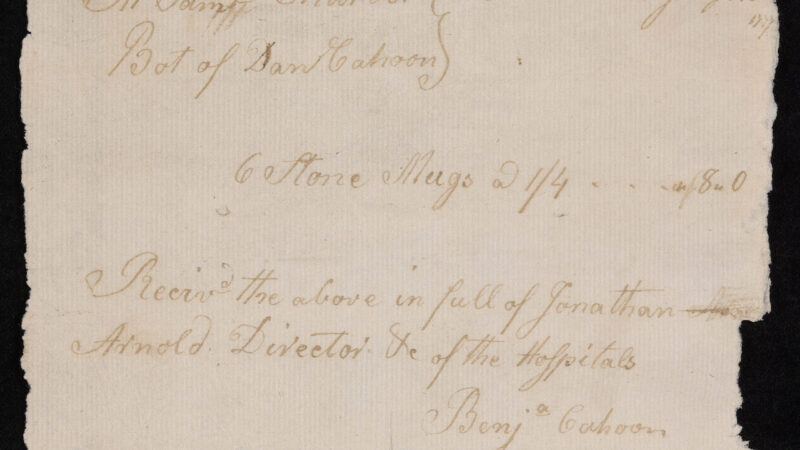 Bot of Dan Cahoon}
6 Stone Mugs a 1/4 . . . 8 " 0
Reciv.d the above in full of Jonathan
Arnold. Director &c of the Hospitals
Benj.a Cahoon